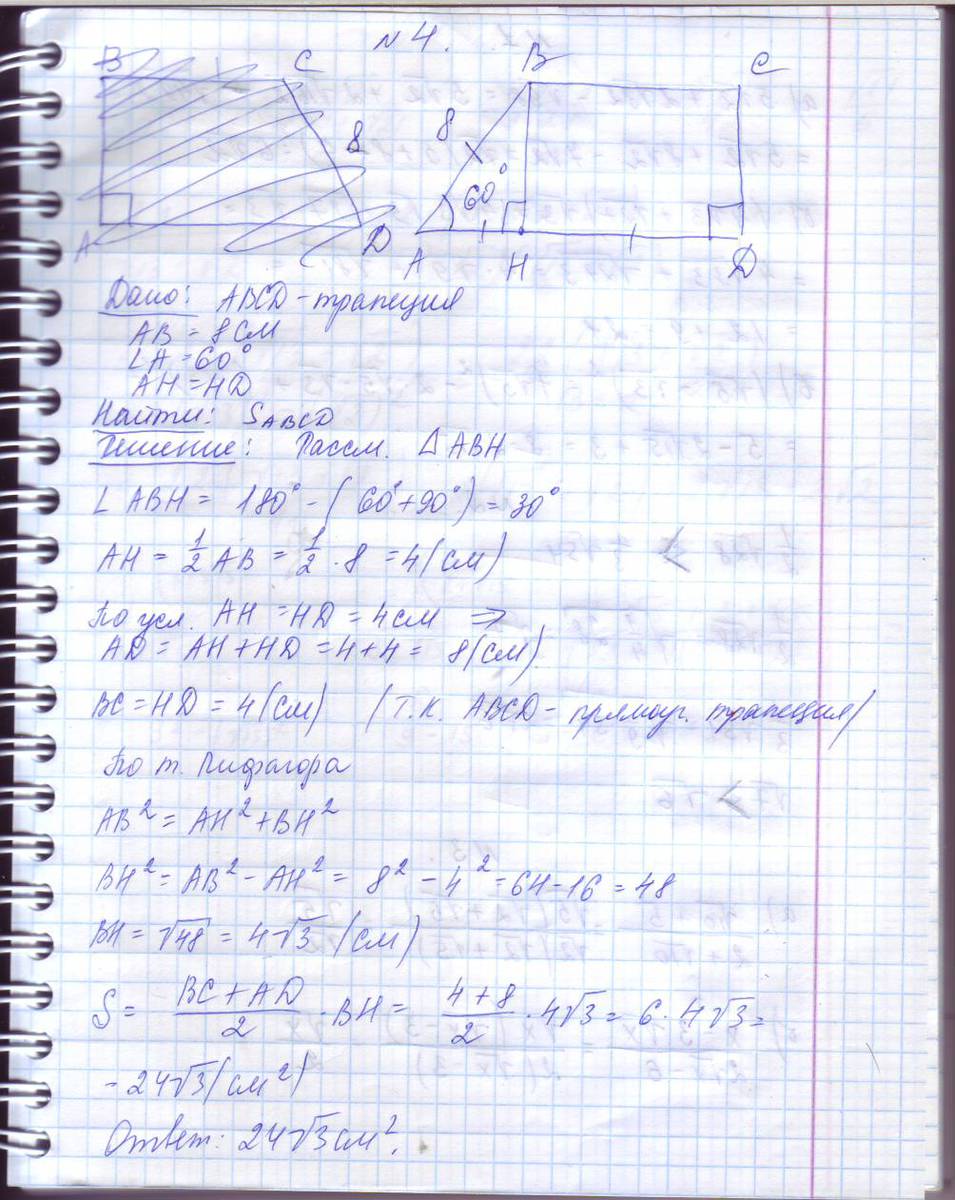 N 4.
B C B C
8 8
60°
A D A H D
Дано: ABCD - трапеция
AB = 8 см
∠A = 60°
AH = HD
Найти: S_ABCD
Решение: Рассм. △ ABH
∠ ABH = 180° - ( 60° + 90° ) = 30°
AH = 1/2 AB = 1/2 · 8 = 4 (см)
По усл. AH = HD = 4 см ⇒
AD = AH + HD = 4 + 4 = 8 (см)
BC = HD = 4 (см) (т.к. ABCD - прямоуг. трапеция)
По т. Пифагора
AB² = AH² + BH²
BH² = AB² - AH² = 8² - 4² = 64 - 16 = 48
BH = √48 = 4√3 (см)
S = (BC + AD)/2 · BH = (4 + 8)/2 · 4√3 = 6 · 4√3 =
- 24√3 (см²)
Ответ: 24√3 см².